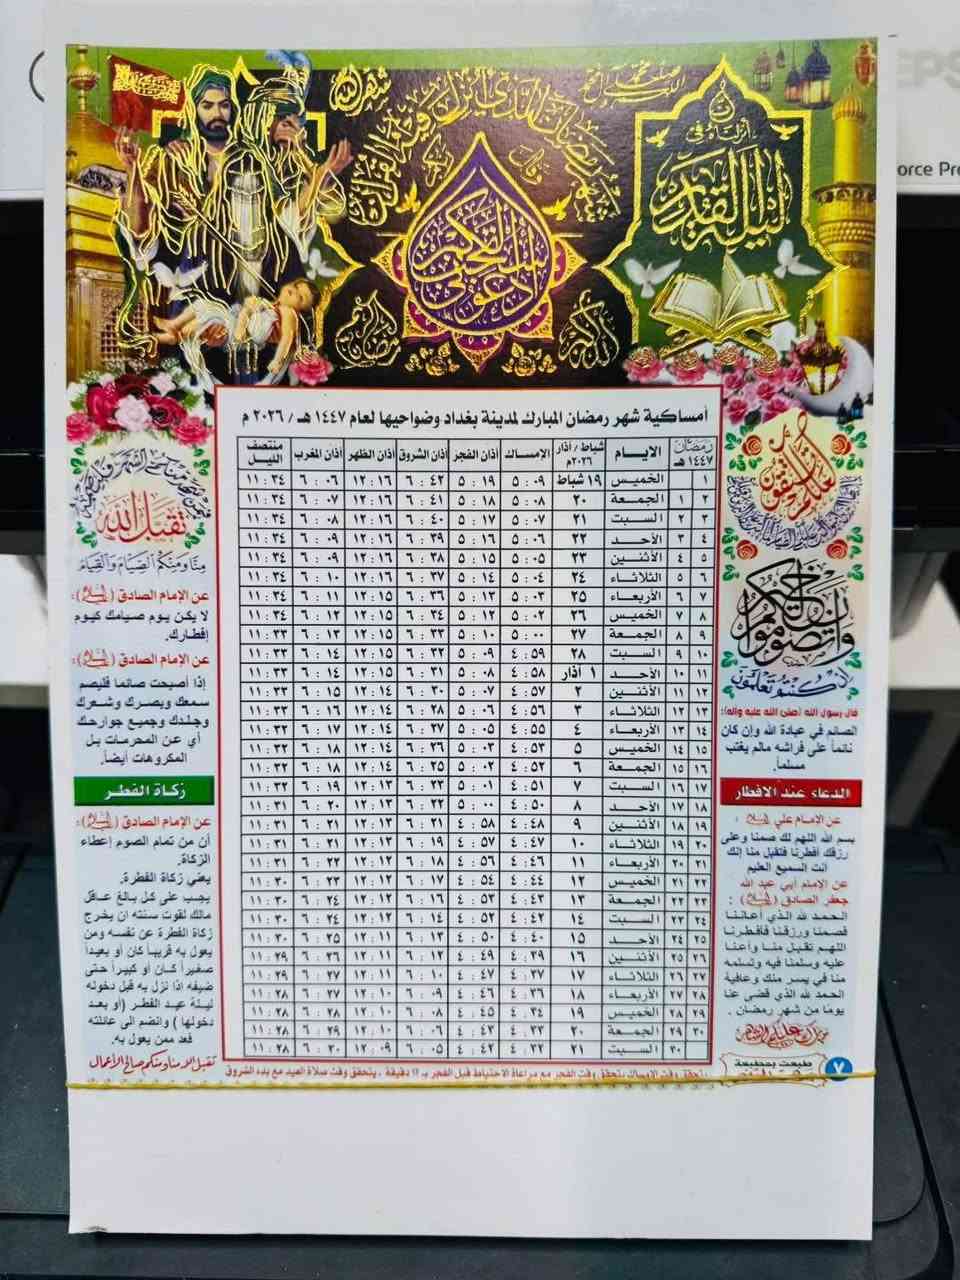 ليلة القدر
أمساكية شهر رمضان المبارك لمدينة بغداد وضواحيها لعام ١٤٤٧ هـ / ٢٠٢٦ م
رمضان ١٤٤٧ هـ الايـام شباط / آذار ٢٠٢٦م الإمساك أذان الفجر أذان الشروق أذان الظهر أذان المغرب منتصف الليل
١ الخميس ١٩ شباط ٥ : ٠٩ ٥ : ١٩ ٦ : ٤٢ ١٢ : ١٦ ٦ : ٠٦ ١١ : ٣٤
٢ ١ الجمعة ٢٠ ٥ : ٠٨ ٥ : ١٨ ٦ : ٤١ ١٢ : ١٦ ٦ : ٠٧ ١١ : ٣٤
٣ ٢ السبت ٢١ ٥ : ٠٧ ٥ : ١٧ ٦ : ٤٠ ١٢ : ١٦ ٦ : ٠٨ ١١ : ٣٤
٤ ٣ الأحد ٢٢ ٥ : ٠٦ ٥ : ١٦ ٦ : ٣٩ ١٢ : ١٦ ٦ : ٠٩ ١١ : ٣٤
٥ ٤ الأثنين ٢٣ ٥ : ٠٥ ٥ : ١٥ ٦ : ٣٨ ١٢ : ١٦ ٦ : ٠٩ ١١ : ٣٤
٦ ٥ الثلاثاء ٢٤ ٥ : ٠٤ ٥ : ١٤ ٦ : ٣٧ ١٢ : ١٦ ٦ : ١٠ ١١ : ٣٤
٧ ٦ الأربعاء ٢٥ ٥ : ٠٣ ٥ : ١٣ ٦ : ٣٦ ١٢ : ١٥ ٦ : ١١ ١١ : ٣٤
٨ ٧ الخميس ٢٦ ٥ : ٠٢ ٥ : ١٢ ٦ : ٣٤ ١٢ : ١٥ ٦ : ١٢ ١١ : ٣٤
٩ ٨ الجمعة ٢٧ ٥ : ٠٠ ٥ : ١٠ ٦ : ٣٣ ١٢ : ١٥ ٦ : ١٣ ١١ : ٣٣
١٠ ٩ السبت ٢٨ ٤ : ٥٩ ٥ : ٠٩ ٦ : ٣٢ ١٢ : ١٥ ٦ : ١٤ ١١ : ٣٣
١١ ١٠ الأحد ١ آذار ٤ : ٥٨ ٥ : ٠٨ ٦ : ٣١ ١٢ : ١٥ ٦ : ١٤ ١١ : ٣٣
١٢ ١١ الأثنين ٢ ٤ : ٥٧ ٥ : ٠٧ ٦ : ٣٠ ١٢ : ١٤ ٦ : ١٥ ١١ : ٣٣
١٣ ١٢ الثلاثاء ٣ ٤ : ٥٦ ٥ : ٠٦ ٦ : ٢٨ ١٢ : ١٤ ٦ : ١٦ ١١ : ٣٣
١٤ ١٣ الأربعاء ٤ ٤ : ٥٥ ٥ : ٠٥ ٦ : ٢٧ ١٢ : ١٤ ٦ : ١٧ ١١ : ٣٣
١٥ ١٤ الخميس ٥ ٤ : ٥٣ ٥ : ٠٣ ٦ : ٢٦ ١٢ : ١٤ ٦ : ١٨ ١١ : ٣٢
١٦ ١٥ الجمعة ٦ ٤ : ٥٢ ٥ : ٠٢ ٦ : ٢٥ ١٢ : ١٤ ٦ : ١٨ ١١ : ٣٢
١٧ ١٦ السبت ٧ ٤ : ٥١ ٥ : ٠١ ٦ : ٢٣ ١٢ : ١٣ ٦ : ١٩ ١١ : ٣٢
١٨ ١٧ الأحد ٨ ٤ : ٥٠ ٥ : ٠٠ ٦ : ٢٢ ١٢ : ١٣ ٦ : ٢٠ ١١ : ٣١
١٩ ١٨ الأثنين ٩ ٤ : ٤٨ ٤ : ٥٨ ٦ : ٢١ ١٢ : ١٣ ٦ : ٢١ ١١ : ٣١
٢٠ ١٩ الثلاثاء ١٠ ٤ : ٤٧ ٤ : ٥٧ ٦ : ١٩ ١٢ : ١٣ ٦ : ٢١ ١١ : ٣١
٢١ ٢٠ الأربعاء ١١ ٤ : ٤٦ ٤ : ٥٦ ٦ : ١٨ ١٢ : ١٢ ٦ : ٢٢ ١١ : ٣١
٢٢ ٢١ الخميس ١٢ ٤ : ٤٤ ٤ : ٥٤ ٦ : ١٧ ١٢ : ١٢ ٦ : ٢٣ ١١ : ٣٠
٢٣ ٢٢ الجمعة ١٣ ٤ : ٤٣ ٤ : ٥٣ ٦ : ١٦ ١٢ : ١٢ ٦ : ٢٤ ١١ : ٣٠
٢٤ ٢٣ السبت ١٤ ٤ : ٤٢ ٤ : ٥٢ ٦ : ١٤ ١٢ : ١٢ ٦ : ٢٤ ١١ : ٣٠
٢٥ ٢٤ الأحد ١٥ ٤ : ٤٠ ٤ : ٥٠ ٦ : ١٣ ١٢ : ١١ ٦ : ٢٥ ١١ : ٣٠
٢٦ ٢٥ الأثنين ١٦ ٤ : ٣٩ ٤ : ٤٩ ٦ : ١٢ ١٢ : ١١ ٦ : ٢٦ ١١ : ٢٩
٢٧ ٢٦ الثلاثاء ١٧ ٤ : ٣٧ ٤ : ٤٧ ٦ : ١٠ ١٢ : ١١ ٦ : ٢٧ ١١ : ٢٩
٢٨ ٢٧ الأربعاء ١٨ ٤ : ٣٦ ٤ : ٤٦ ٦ : ٠٩ ١٢ : ١٠ ٦ : ٢٧ ١١ : ٢٨
٢٩ ٢٨ الخميس ١٩ ٤ : ٣٥ ٤ : ٤٥ ٦ : ٠٨ ١٢ : ١٠ ٦ : ٢٨ ١١ : ٢٨
٣٠ ٢٩ الجمعة ٢٠ ٤ : ٣٣ ٤ : ٤٤ ٦ : ٠٦ ١٢ : ١٠ ٦ : ٢٩ ١١ : ٢٨
٣٠ السبت ٢١ ٤ : ٣٢ ٤ : ٤٢ ٦ : ٠٥ ١٢ : ٠٩ ٦ : ٣٠ ١١ : ٢٨
لعلكم تتقون
وان تصوموا خير لكم
ان كنتم تعلمون
قال رسول الله (صلى الله عليه واله):
الصائم في عبادة الله وإن كان
نائماً على فراشه مالم يغتب
مسلماً.
الدعاء عند الافطار
عن الإمام علي :
بسم الله اللهم لك صمنا وعلى
رزقك أفطرنا فتقبل منا إنك
أنت السميع العليم
عن الإمام أبي عبد الله
جعفر الصادق (السلام) :
الحمد لله الذي أعاننا
فصمنا ورزقنا فأفطرنا
اللهم تقبل منا وأعنا
عليه وسلمنا فيه وتسلمه
منا في يسر منك وعافية
الحمد لله الذي قضى عنا
يوماً من شهر رمضان .
طبعت بمطبعة
٧
فمن شهد منكم الشهر فليصمه
تقبل الله
منا ومنكم الصيام والقيام
عن الإمام الصادق (السلام) :
لا يكن يوم صيامك كيوم
إفطارك.
عن الإمام الصادق (السلام) :
إذا أصبحت صائما فليصم
سمعك وبصرك وشعرك
وجلدك وجميع جوارحك
أي عن المحرمات بل
المكروهات أيضاً.
زكاة الفطر
عن الإمام الصادق (السلام) :
أن من تمام الصوم إعطاء
الزكاة.
يعني زكاة الفطرة.
يجب على كل بالغ عاقل
مالك لقوت سنته ان يخرج
زكاة الفطرة عن نفسه ومن
يعول به قريباً كان أو بعيداً
صغيراً كان أو كبيراً حتى
ضيفه اذا نزل به قبل دخوله
ليلة عيد الفطر (أو بعد
دخولها ) وانضم الى عائلته
فعد ممن يعول به.
تقبل الله منا ومنكم صالح الأعمال
يتحقق وقت الفجر مع مراعاة الاحتياط قبل الفجر بـ ١١ دقيقة ، يتحقق وقت صلاة العيد مع بدء الشروق
orce Pre